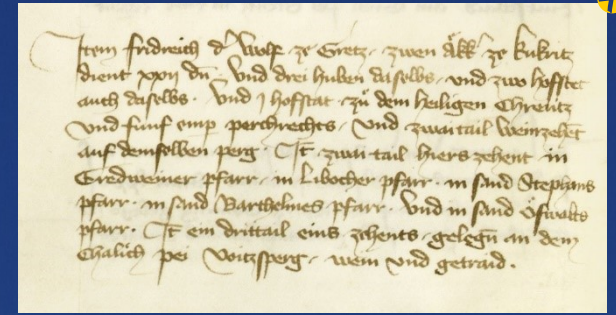 Item fridreich dˀ Wolf ze Gretz zwen åkkˀ ze kukritz
dient xxii dn̄ vnd drei huben daselbs und zwo hofstet
auch daselbs. vnd j hofstat zů dem heiligen Chreutz
vnd fünf emp perchrechts vnd zwaitail weinzehēt
auf demselben perg. It̄ zwai tail hiers zehent in
Gredweiner pfarr in Libocher pfarr in sand Stephans
pfarr in sand Barthelmes pfarr vnd in sand Öswalts
pfarr. It̄ ein drittail eins zehents gelegn̄ an dem
Chalich pei Voitzsperg wein vnd getraid.